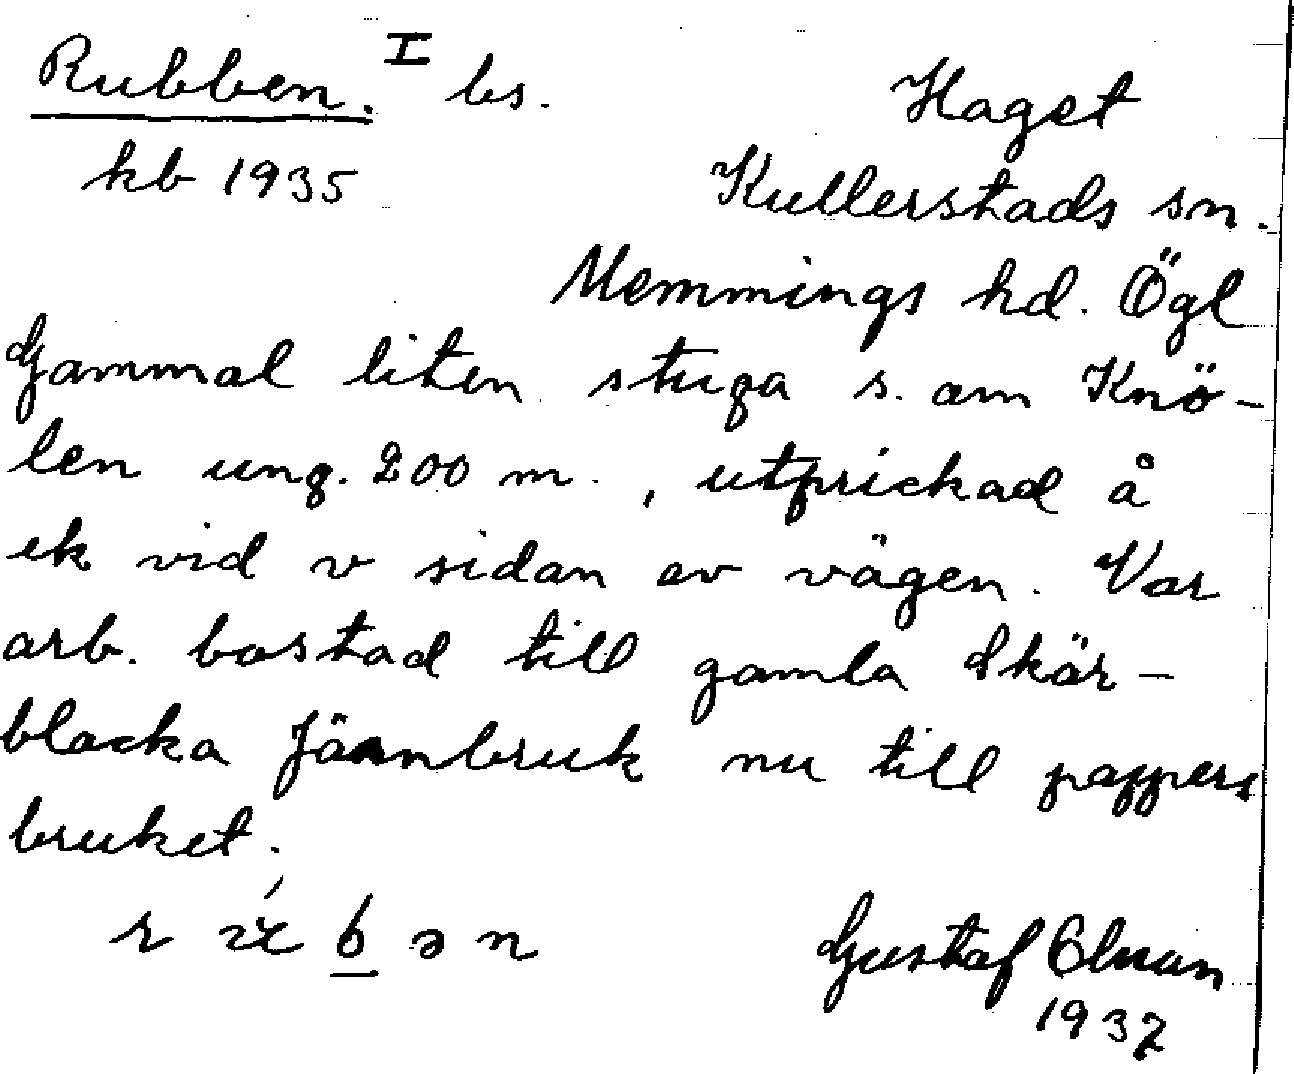 Rubben. I bs. Haget
kb 1935 Kullerstads sn.
Memmings hd. Ögl
Gammal liten stuga s. om Knö-
len ung. 200 m., utprickad å
ek vid v sidan av vägen. Var
arb. bostad till gamla Skär-
blacka Järnbruk nu till pappers
bruket.
Gustaf
1937